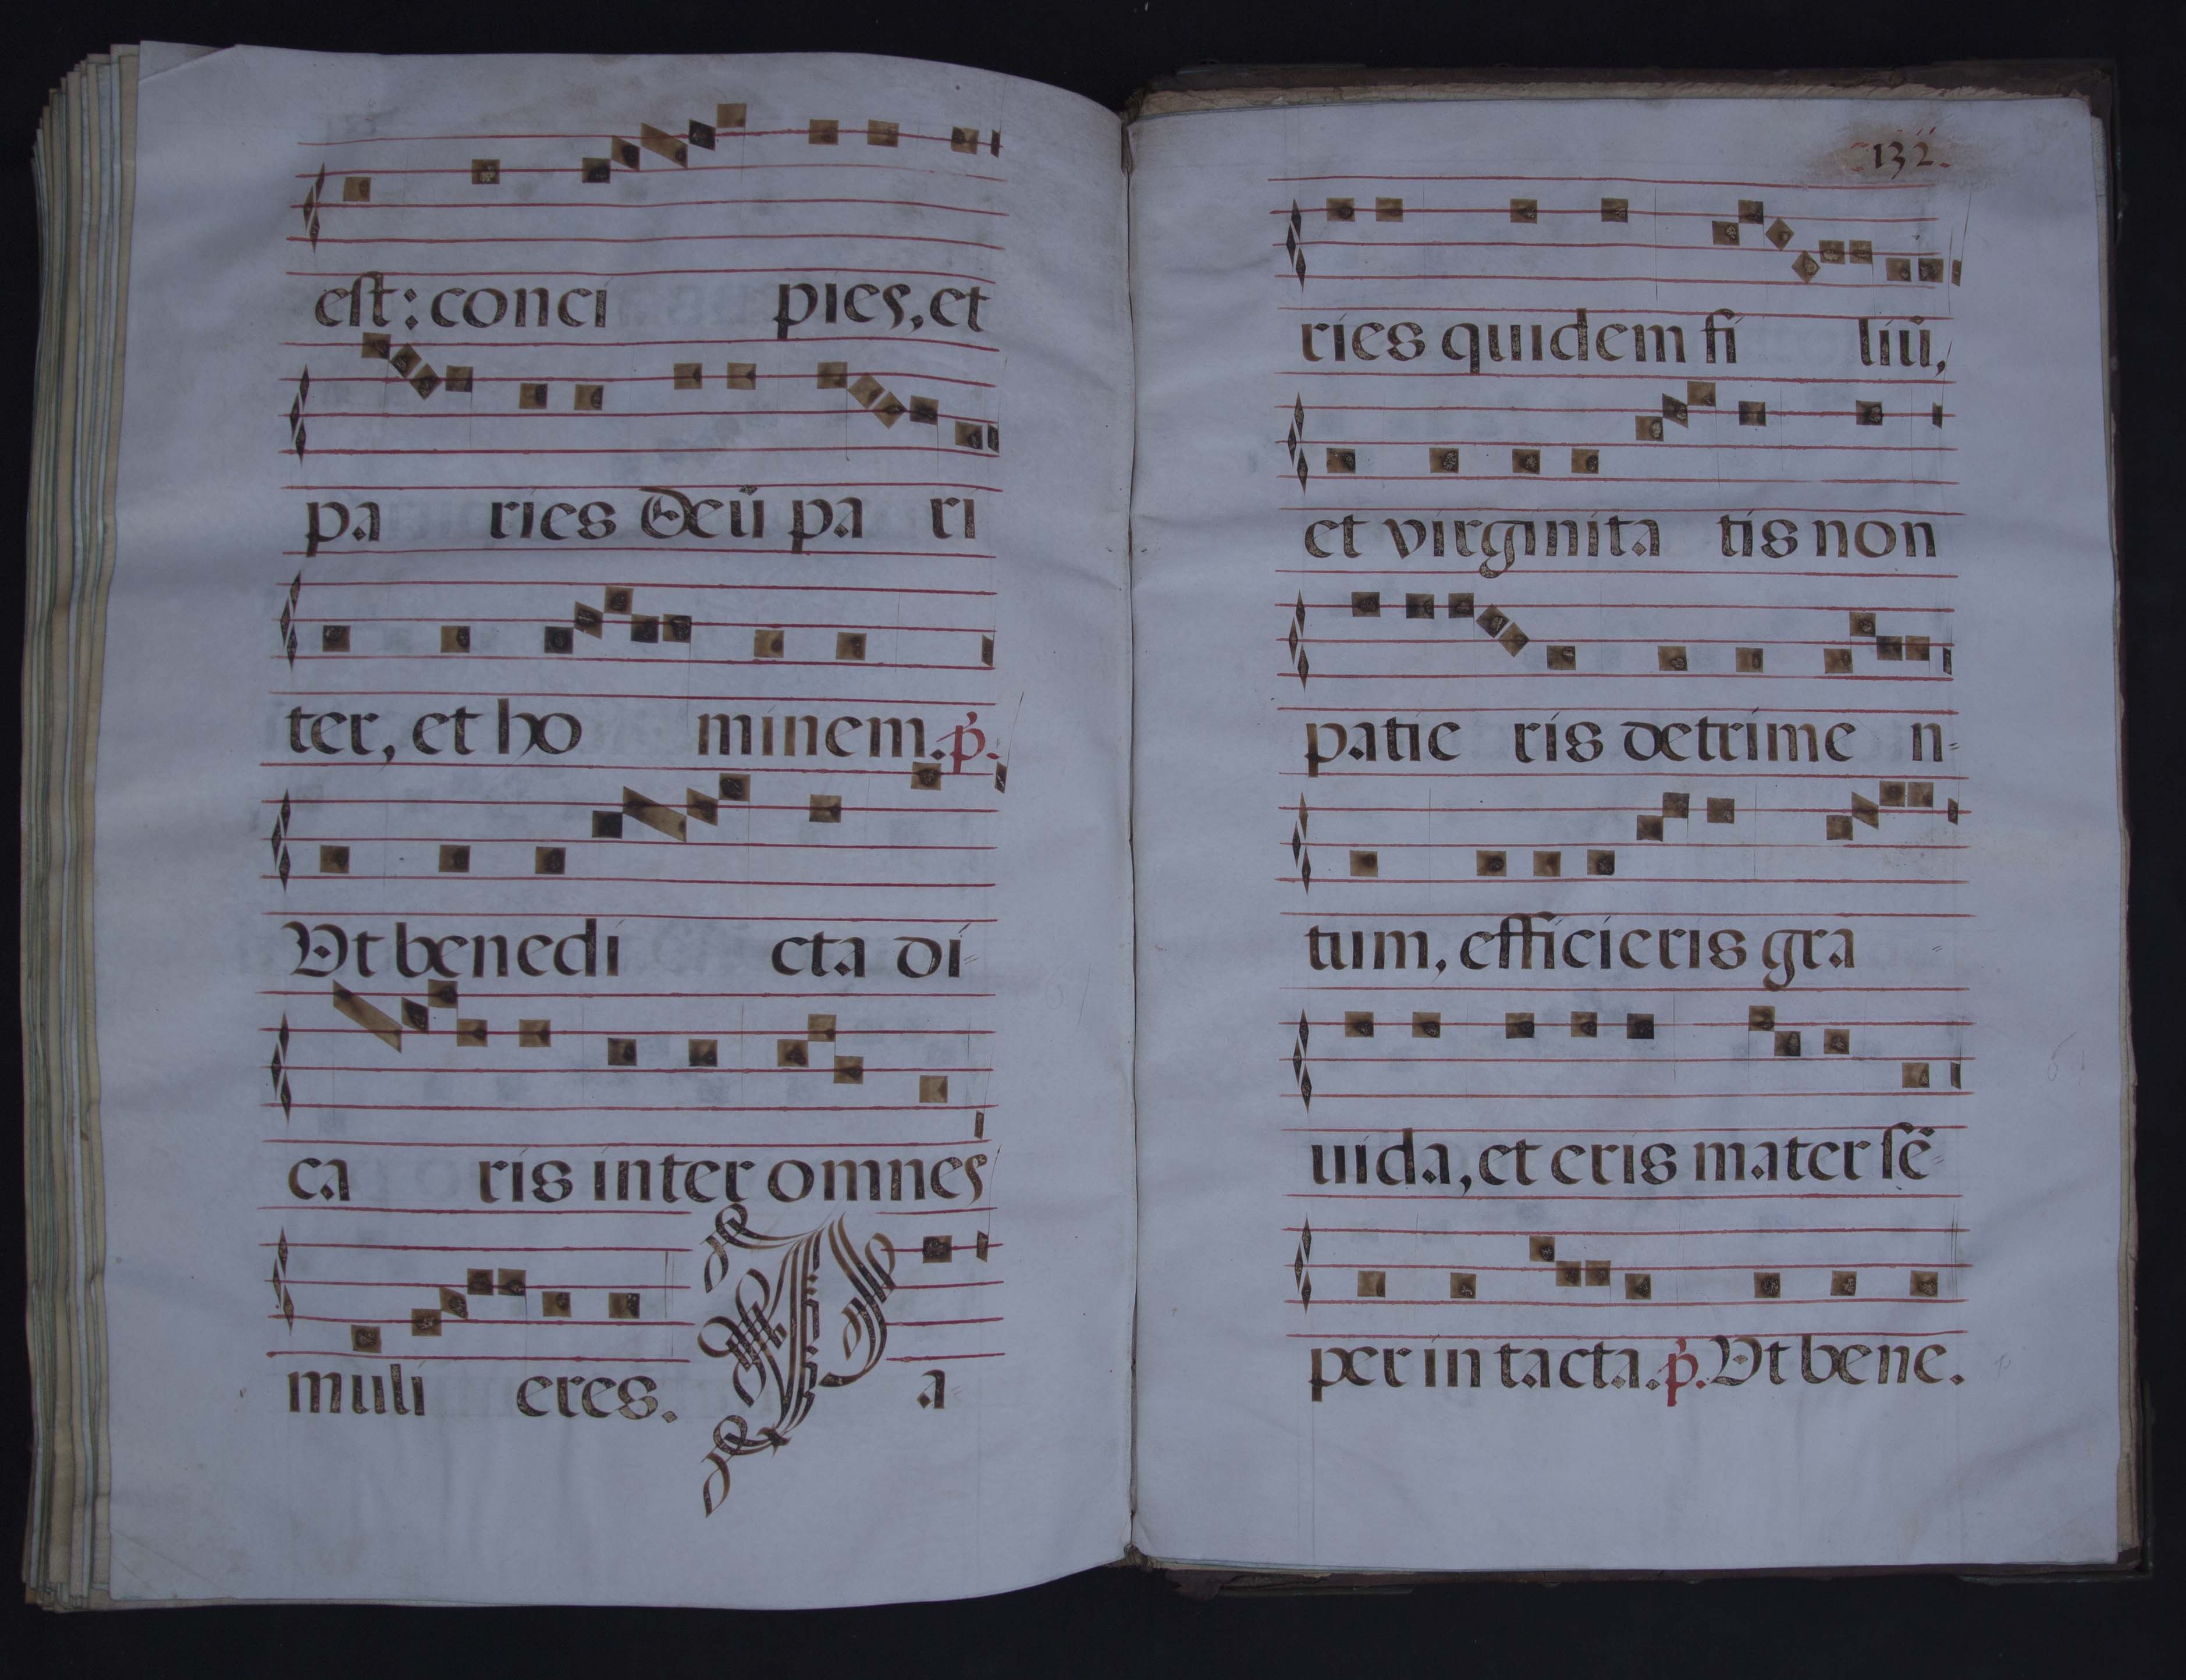 est: conci pies, et
pa ries Deū pa ri
ter, et ho minem. p̄.
Vt benedi cta di=
ca ris inter omnes
muli eres. P a=
132.
ries quidem fi liū,
et virginita tis non
patie ris detrime n=
tum, efficieris gra =
uida, et eris mater sē=
per in tacta. p̄. Vt bene.